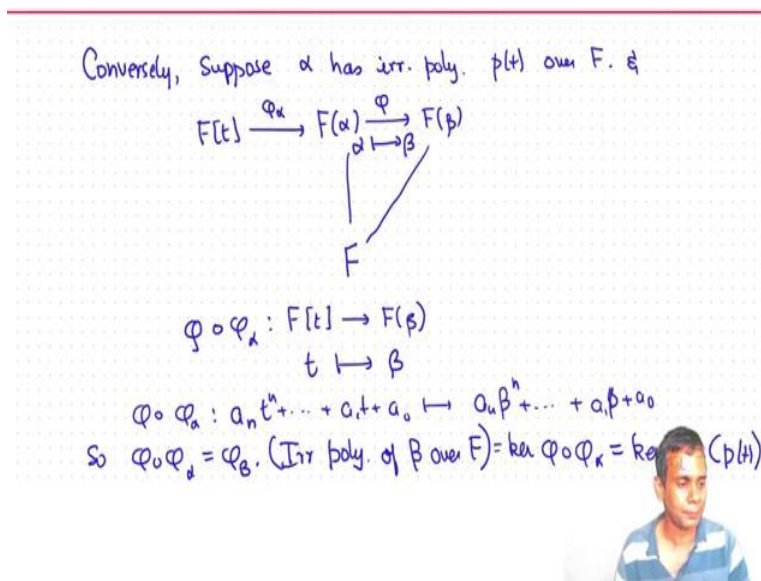 Conversely, Suppose α has irr. poly. p(t) over F. &
F[t] —φα→ F(α) —φ→ F(β)
α ↦ β
F
φ∘φα : F[t] → F(β)
t ↦ β
φ∘φα : aₙtⁿ+...+a₁t+a₀ ↦ aₙβⁿ+...+a₁β+a₀
So φ∘φα = φβ. (Irr poly. of β over F) = ker φ∘φα = ke (p(t))